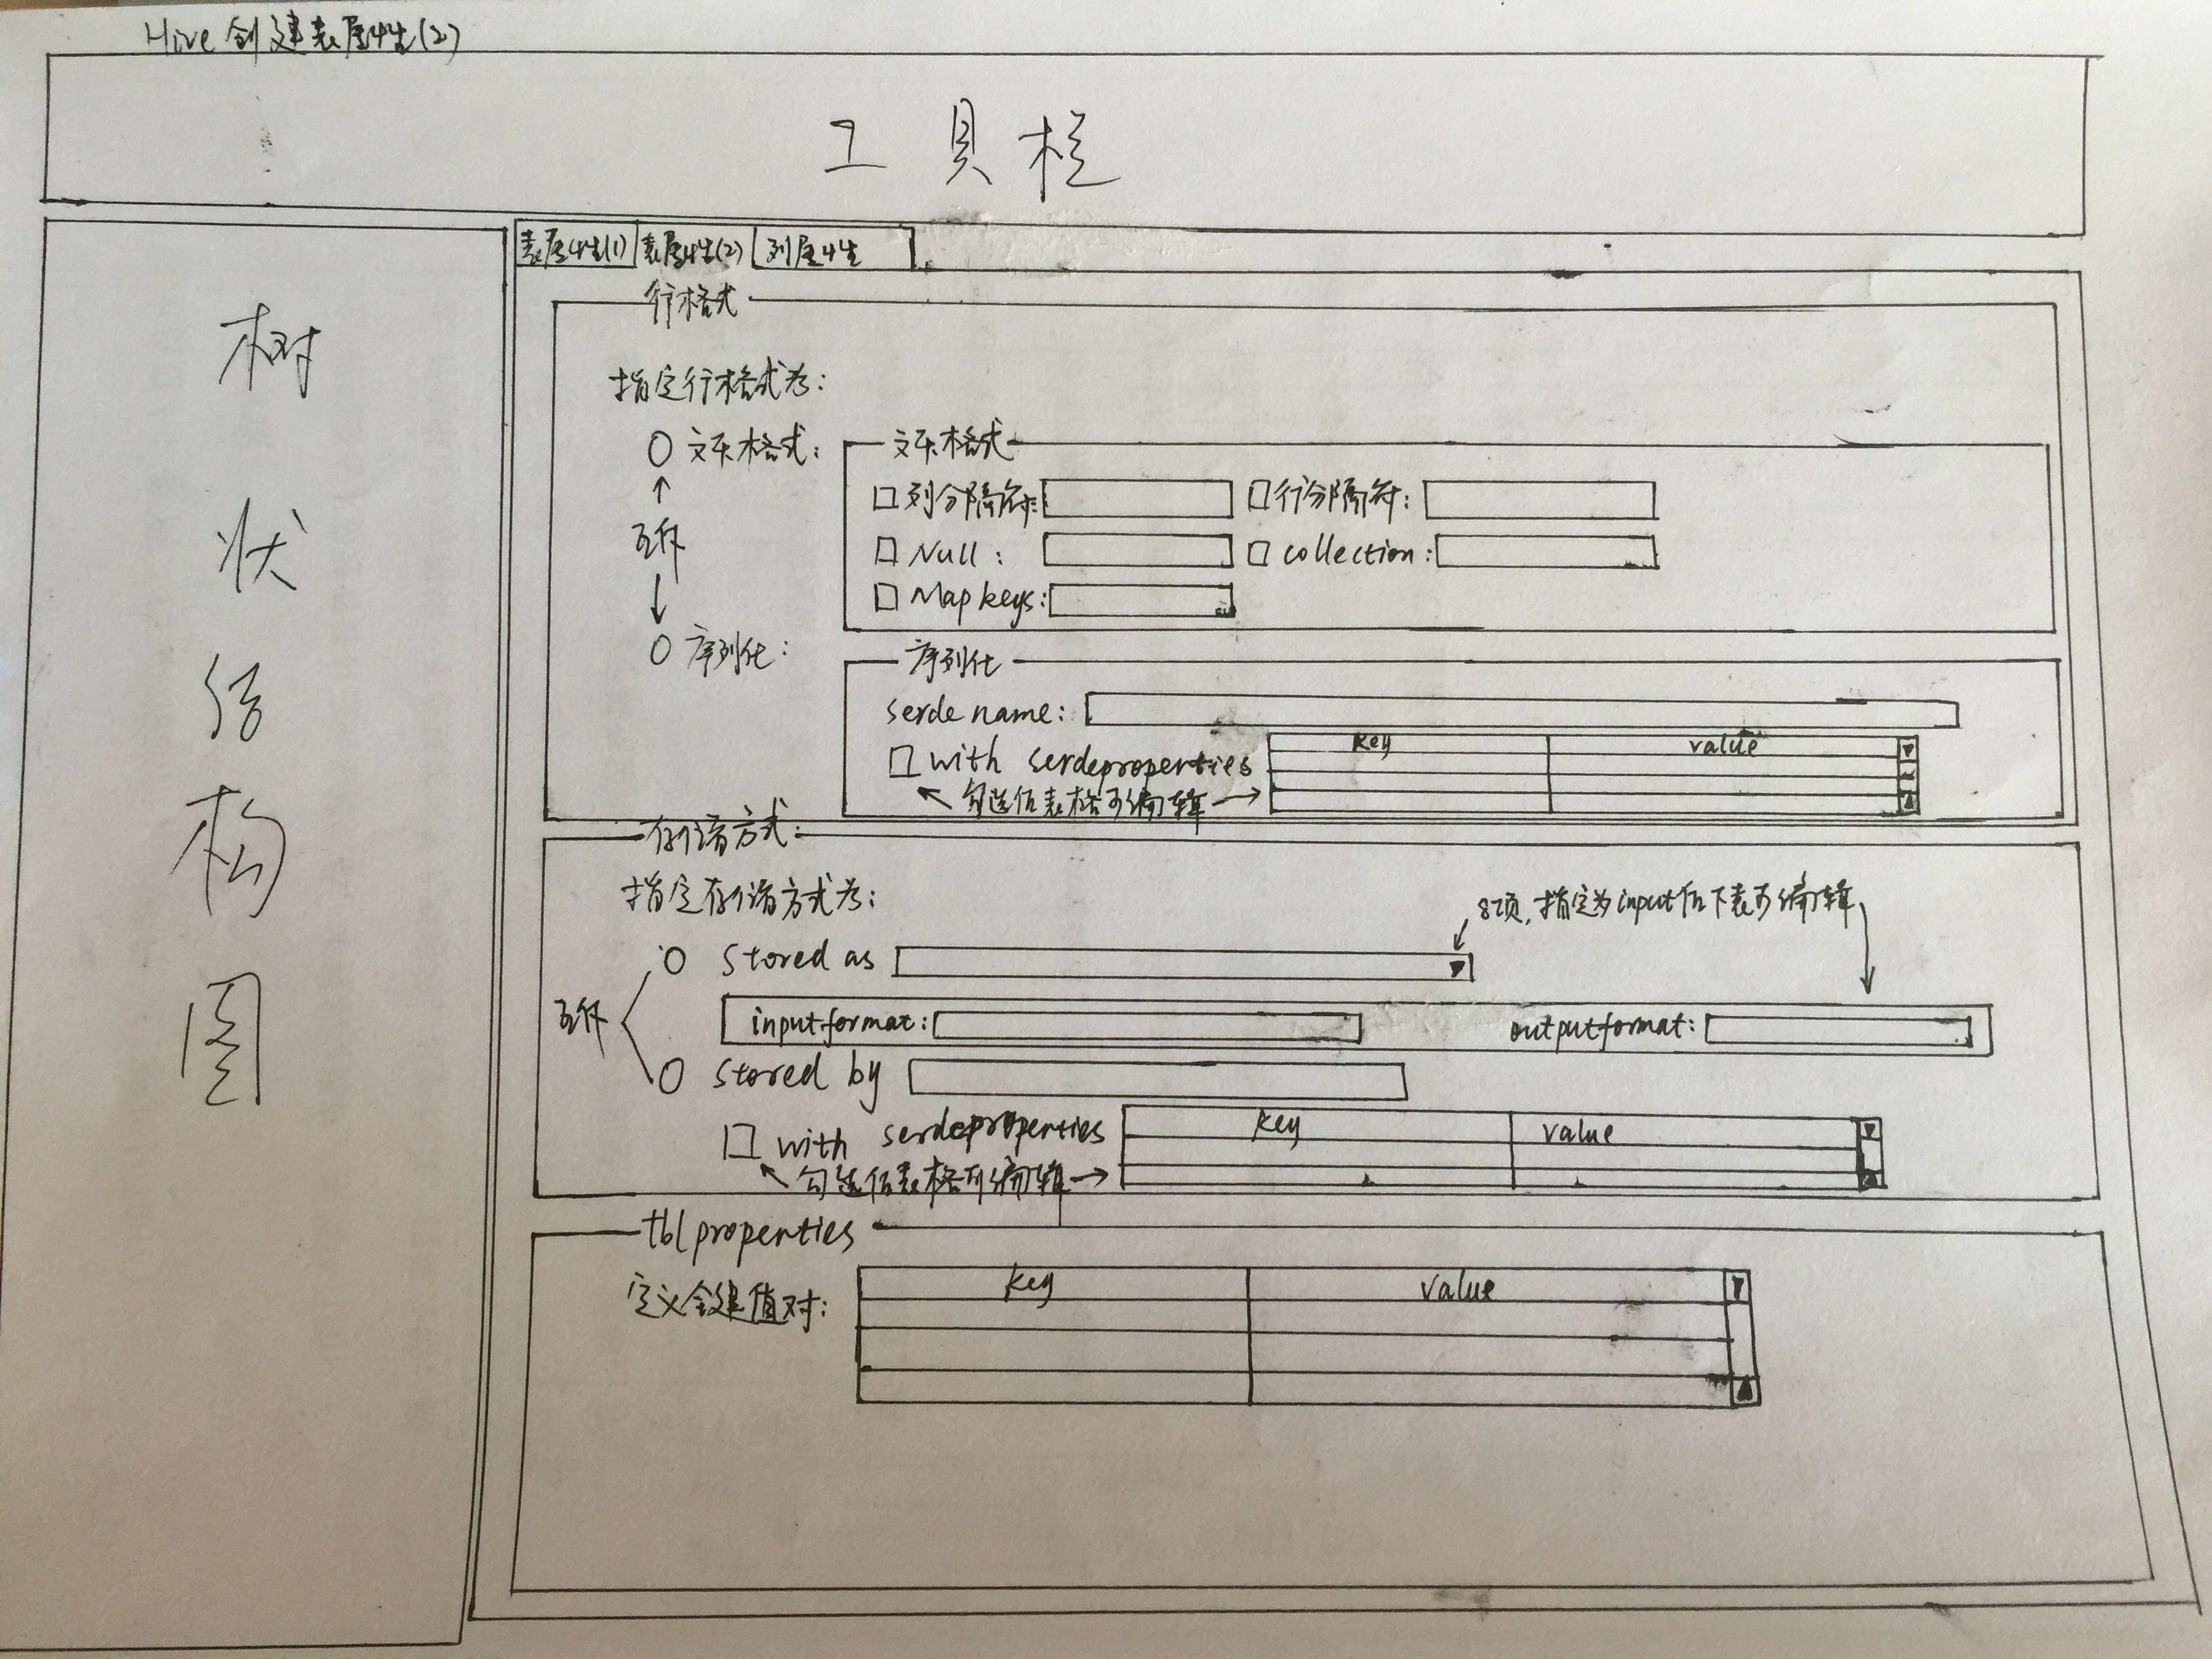 Hive创建表属性(2)
工具栏
树
状
结
构
图
表属性(1) 表属性(2) 列属性
行格式
指定行格式为:
文本格式:
互斥
序列化:
文本格式
列分隔符:
行分隔符:
Null:
collection:
Map keys:
序列化
serde name:
with serdeproperties
勾选后表格可编辑
key value
存储方式:
指定存储方式为:
8项,指定为input后下表可编辑
互斥
Stored as
inputformat: outputformat:
Stored by
with serdeproperties
勾选后表格可编辑
key value
tblproperties
定义键值对:
key value